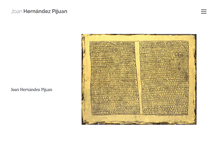 Joan Hernández Pijuan
Joan Hernández Pijuan